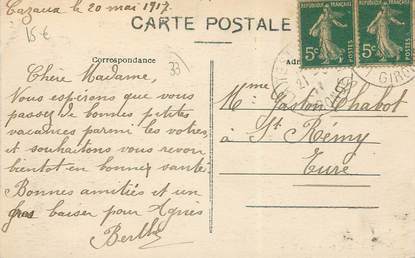 Cazaux le 20 mai 1917.
15€
CARTE POSTALE
RÉPUBLIQUE FRANÇAISE
5c
POSTES
RÉPUBLIQUE FRANÇAISE
5c
POSTES
Correspondance
33
Chère Madame,
Nous espérons que vous
passez de bonnes petites
vacances parmi les votres,
et souhaitons vous revoir
bientot en bonne santé.
Bonnes amitiés et un
gros baiser pour Agnès
Berthe
21
GIRO
Mme Gaston Chabot
à St Rémy
Eure